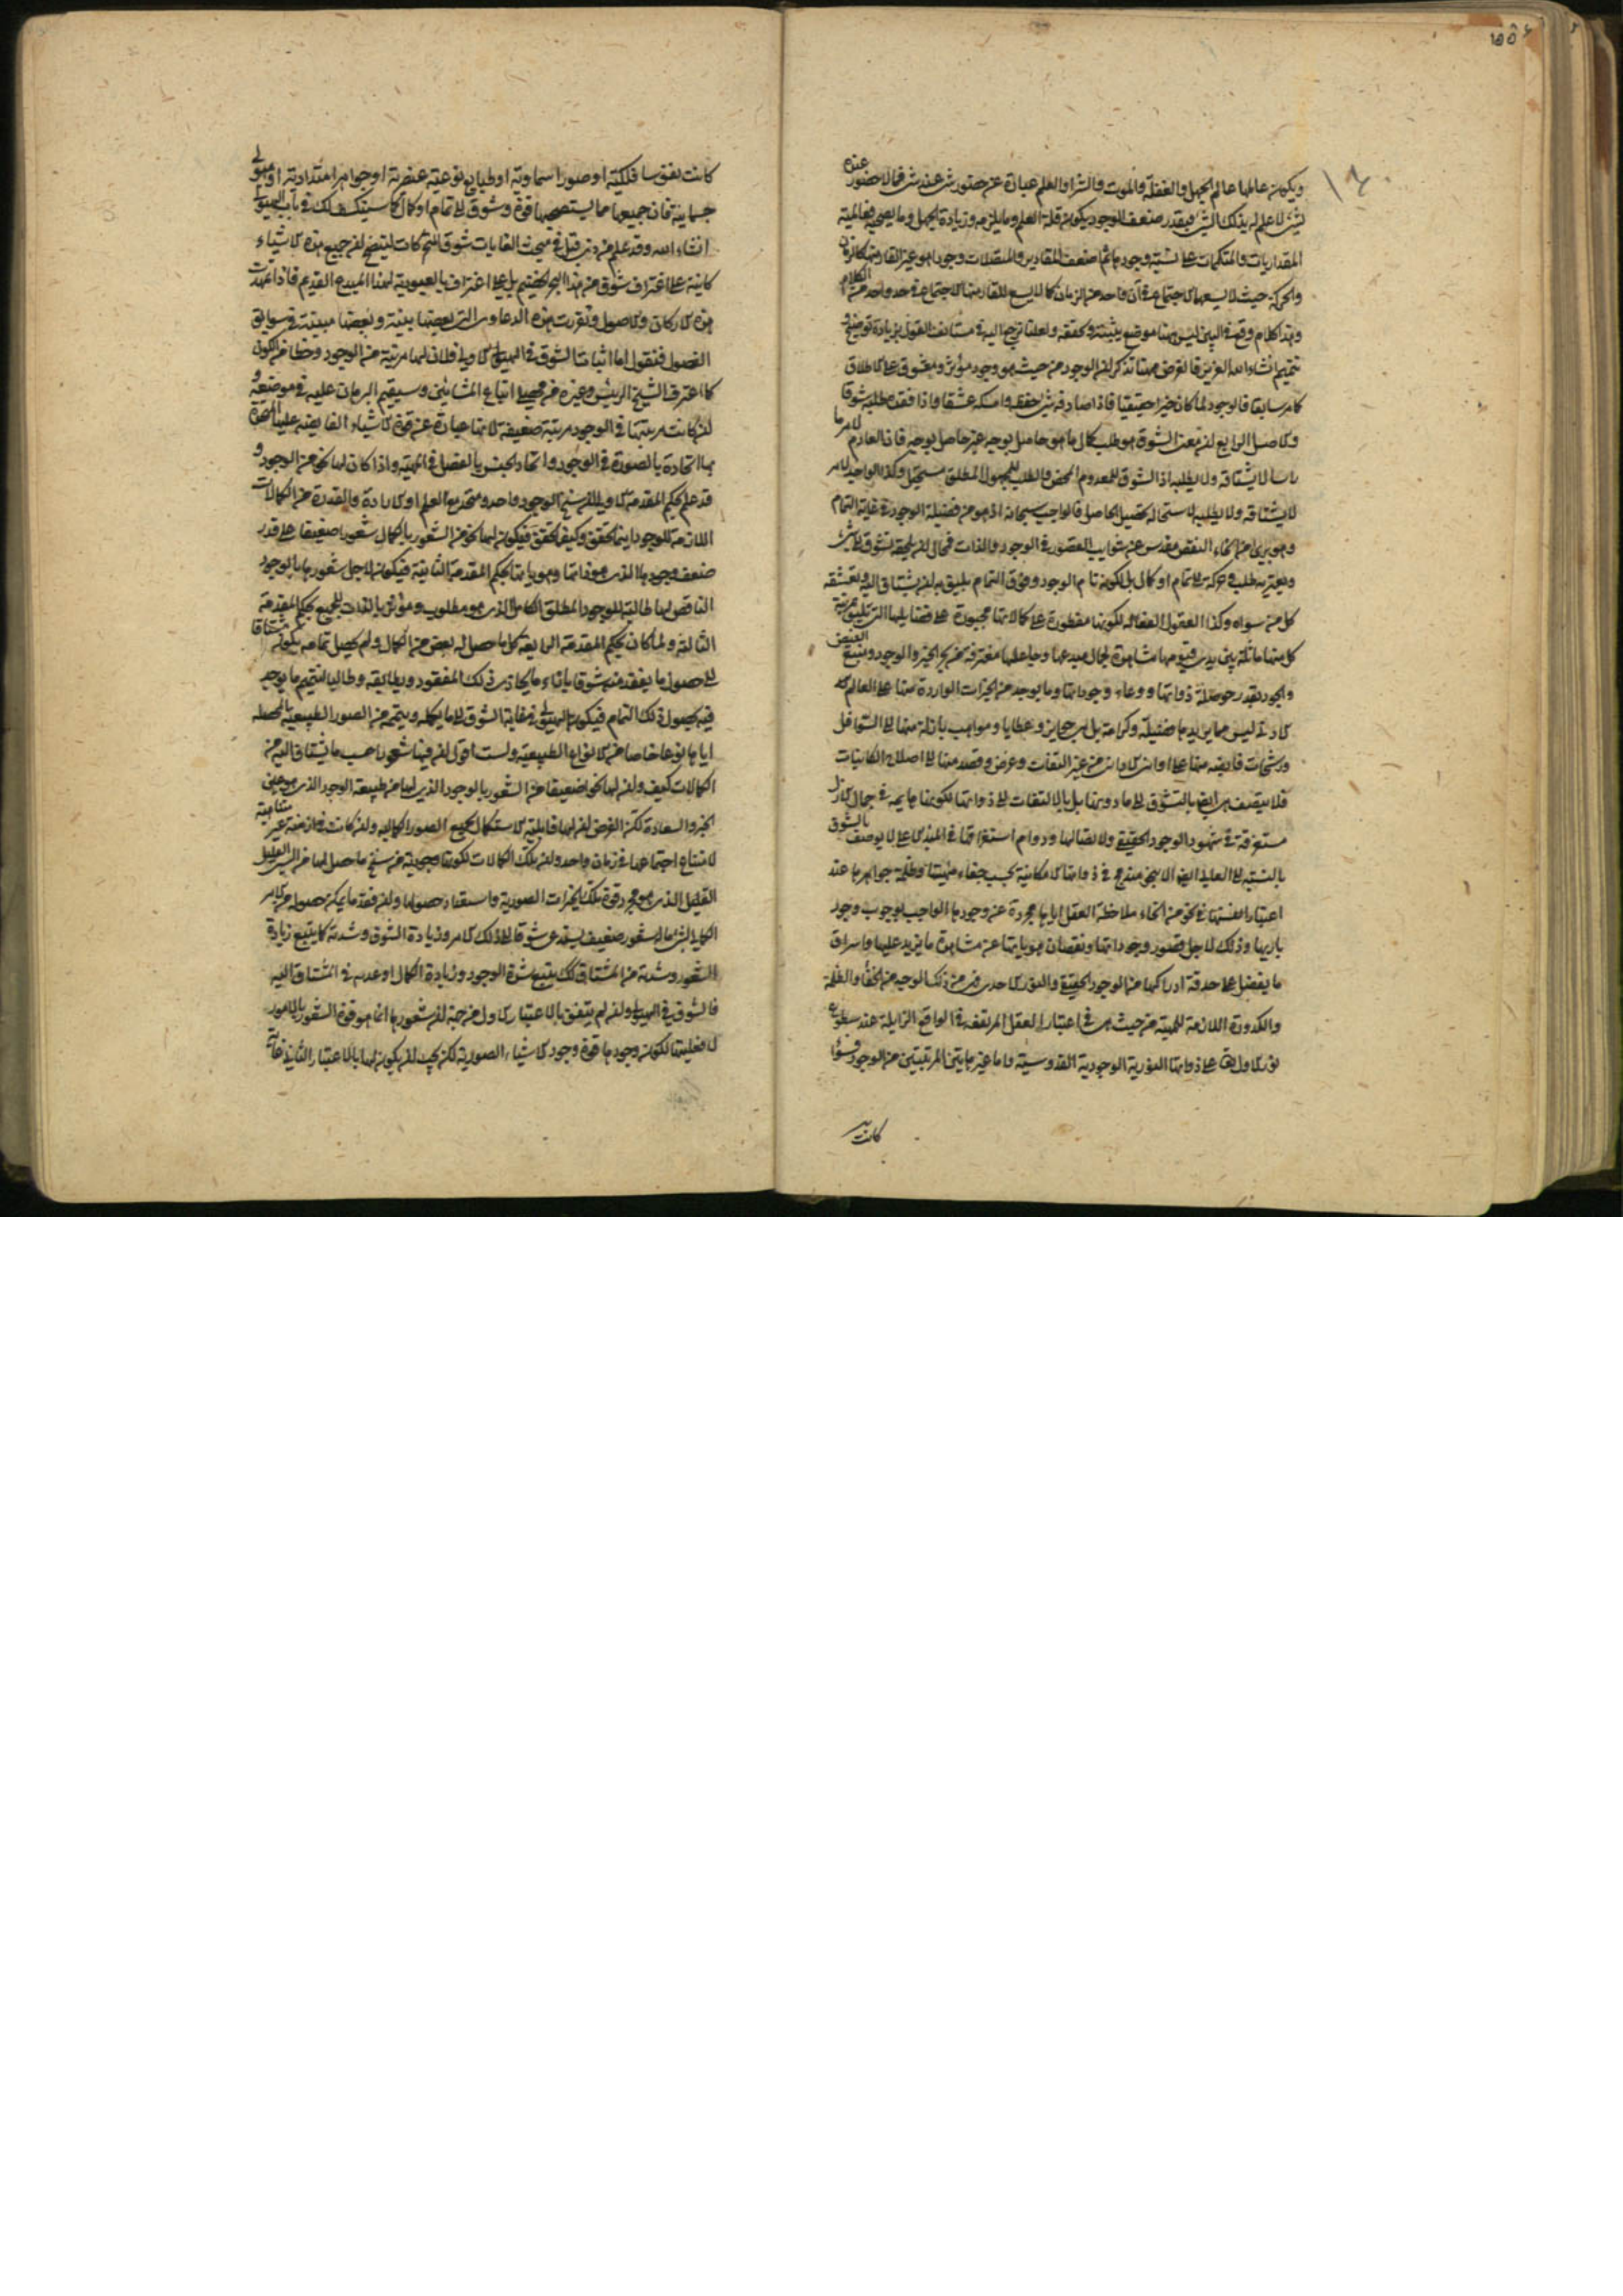 ويكون عالمها عالم الجهل والغفلة والموت والشر او العلم عبارة عن حضور شئ عند شئ فما لا حضور عنده
لشئ لا علم له بذلك الشئ فبقدر ضعف الوجود يكون قلة العلم وما يلزمه وزيادة الجهل وما يصحبه فعالمية
المقداريات والمتكممات على نسبة وجودها ثم اضعف المقادير والمتصلات وجودا هو غير القار منها كالزمان
والحركة حيث لا يسعها الاجتماع في آن واحد من الزمان كما لا يسع للقار منها الاجتماع في حد واحد من
وهذا كلام وقع في البين ليس هنا موضع بيّنته وتحققه ولعلنا نرجع اليه في مستأنف القول بزيادة توضيح و
تتميم انشاء الله العزيز فالغرض ههنا تذكر ان الوجود من حيث هو وجود مؤثر ومعشوق على الاطلاق
كما مر سابقا فالوجود لما كان خيرا حقيقيا فاذا صادفه شئ حفظه وامسكه عشقا واذا فقده طلبه شوقا
والاصل الرابع ان معنى الشوق هو طلب كمال ما هو حاصل بوجه غير حاصل بوجه فان العادم لامر ما
راسا لا يشتاقه ولا يطلبه اذ الشوق للمعدوم المحض والطلب للمجهول المطلق مستحيل وكذا الواجد لامر
لا يشتاقه ولا يطلبه لاستحالة تحصيل الحاصل فالواجب سبحانه اذ هو من فضيلة الوجود في غاية التمام
وهو برئ من انحاء النقص مقدس عن شوايب القصور في الوجود والذات فمحال ان يلحقه تشوق الى شئ
ويعتريه طلب وحركة الى تمام او كمال بل لكونه تام الوجود وفوق التمام يليق به ان يشتاق اليه ويتعشقه
كل من سواه وكذا العقول الفعالة لكونها مفطورة على كمالاتها مجبورة على فضايلها التي تليق بمرتبة
كل منها ماثلة بين يدى قيومها مشاهدة لجمال مبدعها وجاعلها مغترفة من بحر الخير والوجود ومنبع الفيض
والجود بقدر حوصلة ذواتها ووعاء وجوداتها وما يوجد من الخيرات الواردة منها على العالم
الادنى ليس مما يزيدها فضيلة وكرامة بل هي جوايز وعطايا ومواهب نازلة منها الى السوافل
ورشحات فايضة منها على الاوانى والادانى من غير التفات وغرض وقصد منها الى اصلاح الكائنات
فلا يتصف هي ايضا بالتشوق الى ما دونها بل بالالتفات الى ذواتها لكونها هايمة في جمال الازل
مستغرقة في شهود الوجود الحقيقى ولا تصالها ودوام استغراقها في المبدء الاعلى لا يوصف بالشوق
بالنسبة الى العالى ايضا الا بنحو مندمج في ذواتها الامكانية بحسب خفاء مهيتها وظلمة جواهرها عند
اعتبار انفسها في نحو من انحاء ملاحظة العقل اياها مجردة عن وجودها الواجب بوجوب وجود
باريها وذلك لاجل قصور وجوداتها ونقصان هوياتها عن مشاهدة ما يزيد عليها واشراق
ما يفضل على حدقة ادراكها من الوجود الحقيقى والنور الاحدى فمن ذلك الوجه من الخفاء والظلمة
والكدورة اللازمة للمهية من حيث هي في اعتبار العقل المرتفعة في الواقع الزايلة عند سطوع
نور الاول تعالى على ذواتها النورية الوجودية القدوسية واما غير هاتين المرتبتين من الوجود سواء
كانت
كانت نفوسا فلكية او صورا سماوية او طبايع نوعية عنصرية او جواهر امتدادية او هيولى
جسمانية فان جميعها مما يستصحبها قوة وشوق الى تمام او كمال كما سينكشف لك في باب الهيولى
انشاء الله وقد علم من ذى قبل في مبحث الغايات شوق المتحركات ليتضح ان جميع هذه الاشياء
كاينة على اغتراف شوق من هذا البحر الخضيم بل على اعتراف بالعبودية لهذا المبدع القديم فاذا تمهدت
هذه الاركان والاصول وتقررت هذه الدعاوى التى بعضها بينة وبعضها مبينة في سوابق
الفصول فنقول اما اثبات الشوق في الهيولى الاولى فلان لها مرتبة من الوجود وحظا من الكون
كما اعترف الشيخ الرئيس وغيره من محصلى اتباع المشائين وسيقيم البرهان عليه في موضعه و
ان كانت مرتبتها في الوجود مرتبة ضعيفة لانها عبارة عن قوة الاشياء الفايضة عليها المتحدة
بها اتحادة بالصورة في الوجود واتحاد الجنس بالفصل في المهية واذا كان لها نحو من الوجود و
قد علم بحكم المقدمة الاولى ان سنخ الوجود واحد ومتحد مع العلم والارادة والقدرة من الكمالات
اللازمة للوجود اينما تحقق وكيف تحقق فيكون لها نحو من الشعور بالكمال شعورا ضعيفا على قدر
ضعف وجودها الذى هو ذاتها وهويتها بحكم المقدمة الثانية فيكون لاجل شعورها بالوجود
الناقص لها طالبة للوجود المطلق الكامل الذى هو مطلوب ومؤثر بالذات للجميع بحكم المقدمة
الثالثة ولما كان بحكم المقدمة الرابعة كل ما حصل له بعض من الكمال ولم يحصل تمامه يكون مشتاقا
الى حصول ما يفقد منه شوقا بازاء ما يحاذى ذلك المفقود ويطابقه وطالبا لتتميم ما يوجد
فيه بحصول ذلك التمام فيكون الهيولى في غاية الشوق الى ما يكمله ويتممه من الصور الطبيعية المحصلة
اياها نوعا خاصا من الانواع الطبيعية ولست اقول ان فيها شعورا حسب ما يشتاق اليه من
الكمالات كيف وان لها نحوا ضعيفا من الشعور بالوجود الذى لها من طبيعة الوجود الذى هو عين
الخير والسعادة لكن الغرض ان لها قابلية الاستكمال بجميع الصور الكمالية وان كانت في ازمنة غير متناهية
لامتناع اجتماعها في زمان واحد وان تلك الكمالات لكونها مجهولة من سنخ ما حصل لها من الشئ القليل
القليل الذى هو مجرد قوة تلك الخيرات الصورية واستعداد حصولها وان فقد ما يمكن حصوله من الامر
الكمالى لشئ ما له شعور ضعيف يستدعى شوقا الى ذلك الامر وزيادة الشوق وشدته كما يتبع زيادة
الشعور وشدته من المشتاق كذلك يتبع شدة الوجود وزيادة الكمال او عدمه في المشتاق اليه
فالشوق في الهيولى وان لم يتفق بالاعتبار الاول من جهة ان شعورها انما هو قوة الشعور بالامور
لا فعليتها لكون وجودها قوة وجود الاشياء الصورية لكن يجب ان يكون لها بالاعتبار الثانى غاية